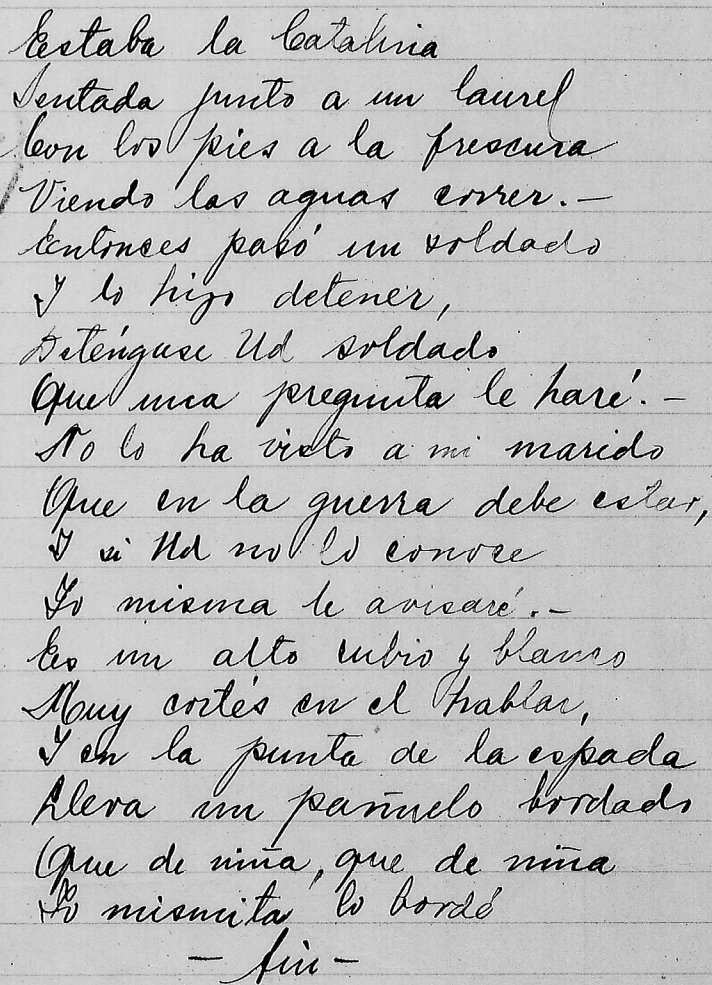 Estaba la Catalina
Sentada junto a un laurel
Con los pies a la frescura
Viendo las aguas correr.—
Entonces pasó un soldado
Y lo hizo detener,
Deténgase Ud soldado
Que una pregunta le haré.—
No lo ha visto a mi marido
Que en la guerra debe estar,
Y si Ud no lo conoce
Yo misma le avisaré.—
Es un alto rubio y blanco
Muy cortés en el hablar,
Y en la punta de la espada
Lleva un pañuelo bordado
Que de niña, que de niña
Yo mismita lo bordé
— fin —